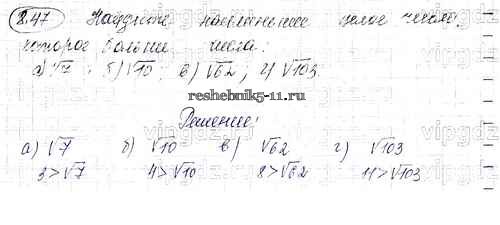 8.47 Найдите наименьшее целое число,
которое больше числа:
а) √7; б) √10; в) √62; г) √103.
reshebnik5-11.ru
Решение:
а) √7 б) √10 в) √62 г) √103
3 > √7 4 > √10 8 > √62 11 > √103